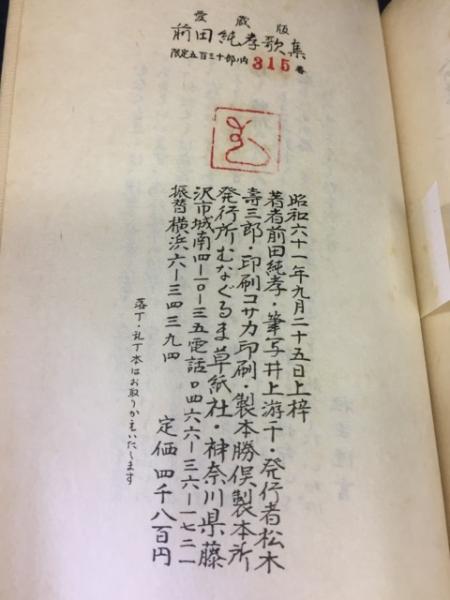 愛蔵版
前田純孝歌集
限定五百三十部ノ内315番
昭和六十一年九月二十五日上梓
著者前田純孝・筆写井上游千・発行者松木
壽三郎・印刷コサカ印刷・製本勝俣製本所
発行所むなぐるま草紙社・神奈川県藤
沢市城南四ー一〇ー三五電話〇四六六ー三六ー一七二一
振替横浜六ー三四三九四
定価四千八百円
落丁・乱丁本はお取りかえいたします